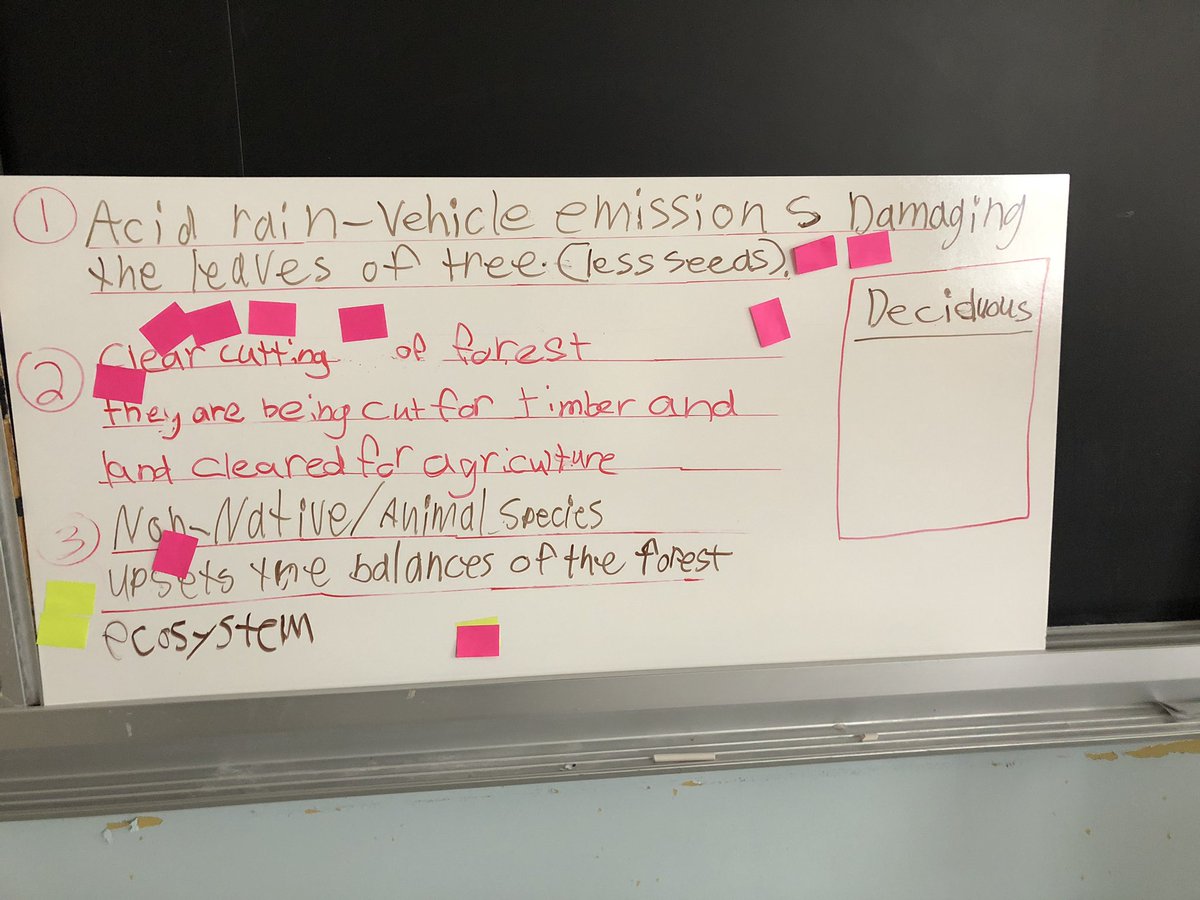 1 Acid rain-Vehicle emissions Damaging
the leaves of tree. (less seeds).
Deciduous
2 Clear cutting of forest
they are being cut for timber and
land cleared for agriculture
3 Non-Native/Animal Species
upsets the balances of the forest
ecosystem